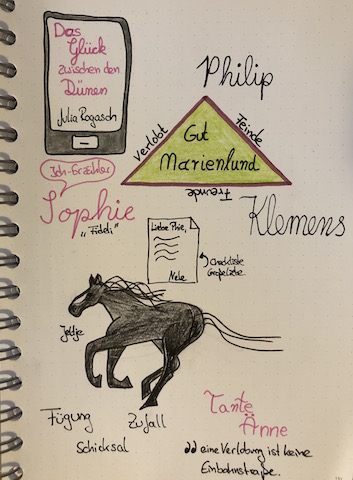 Das
Glück
zwischen den
Dünen
Julia Rogasch
Philip
Verlobt
Feinde
Gut
Marienlund
Freunde
Ich-Erzähler
Sophie
"Fideli"
Klemens
Liebe Phie,
Nele
Checkliste
Jeltje
Fügung
Zufall
Schicksal
Tante
Änne
eine Verlobung ist keine
Einbahnstraße.